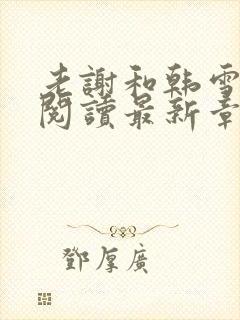 老謝和韩雪
閱讀最新章
鄧厚廣